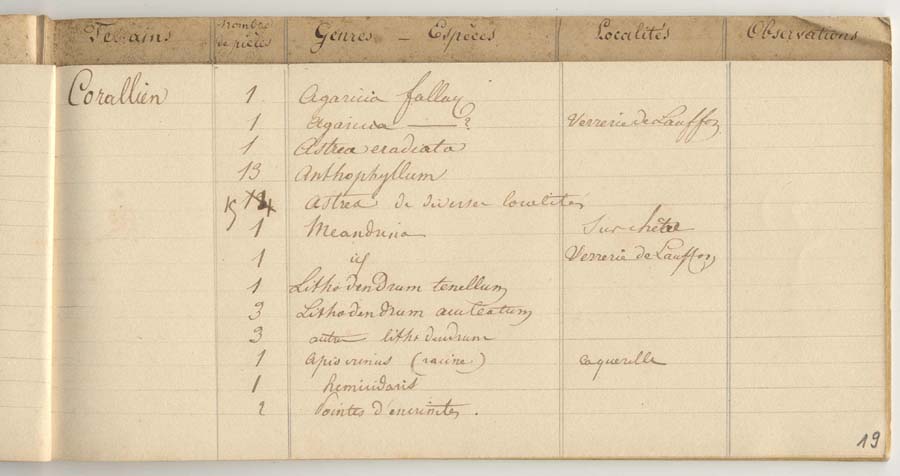 Terrains Nombre de pièces Genres - Espèces Localités Observations
Corallien 1 Agaricia fallax
1 Agaricia —— ? Verrerie de Lauffon
1 Astrea eradiata
13 Anthophyllum
15 Astrea de diverses localités
1 Meandrina Sur-chètel
1 id Verrerie de Lauffon
1 Lithodendrum tenellum
3 Lithodendrum aculeatum
3 autre lithodendrum
1 Apiocrinus (racine) Caquerelle
1 hemicidaris
2 Pointes d'encrinites.
19